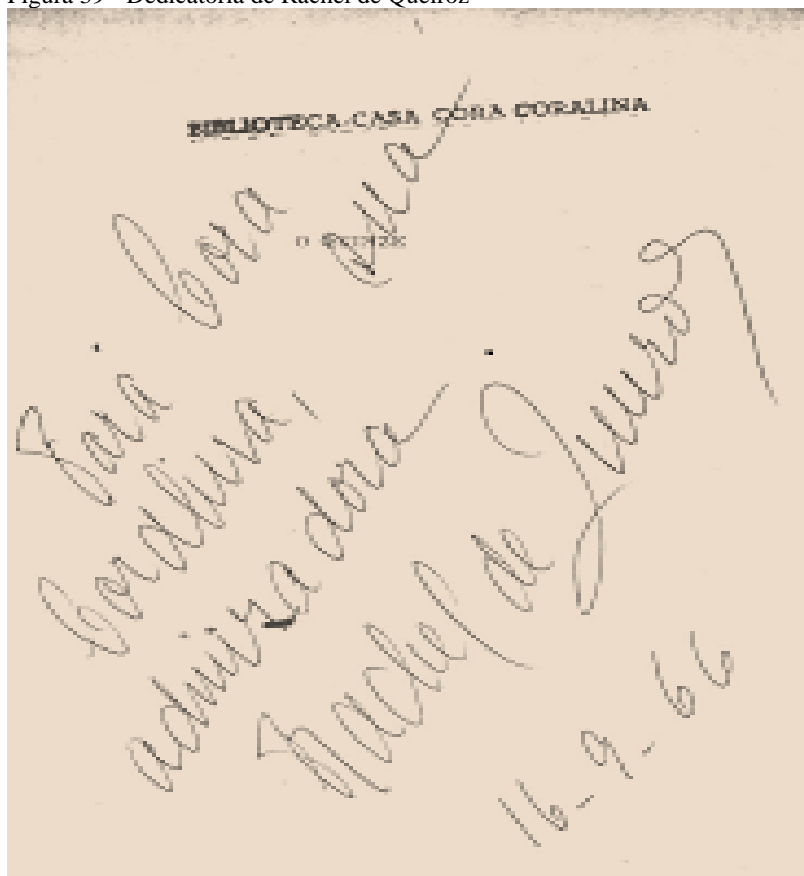 Figura 39 - Dedicatória de Rachel de Queiroz
BIBLIOTECA-CASA CORA CORALINA
O QUINZE
Para Cora
Coralina, sua
admiradora
Rachel de Queiroz
16-9-66